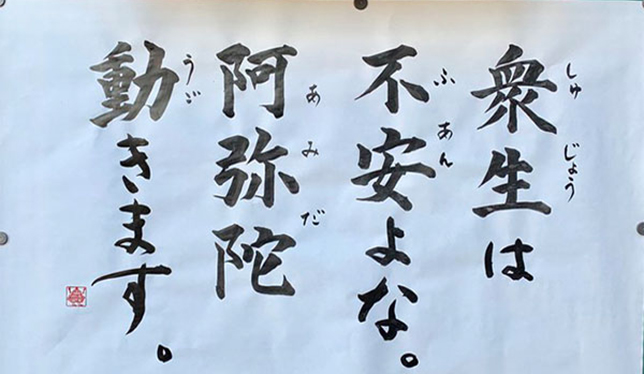 衆生は
しゅじょう
不安よな。
ふあん
阿弥陀
あみだ
動きます。
うご